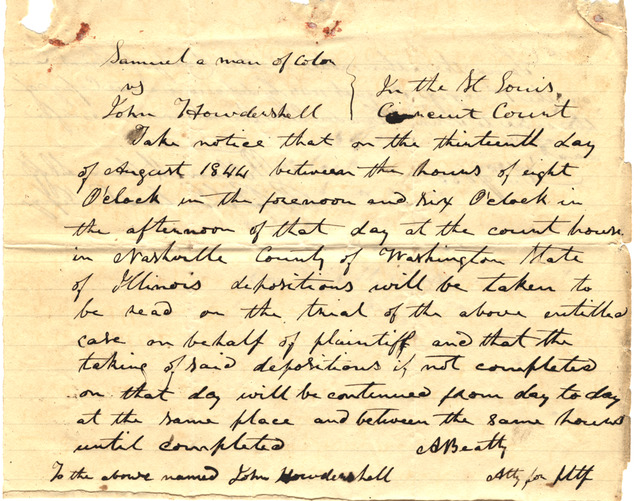 Samuel a man of Color
vs } In the St Louis
John Howdershell Circuit Court
Take notice that on the thirteenth day
of August 1844 between the hours of eight
O'clock in the forenoon and six O'clock in
the afternoon of that day at the court house
in Nashville County of Washington State
of Illinois depositions will be taken to
be read on the trial of the above entitled
case on behalf of plaintiff and that the
taking of said depositions if not completed
on that day will be continued from day to day
at the same place and between the same hours
until completed ABeatty
To the above named John Howdershell Atty for Pltf